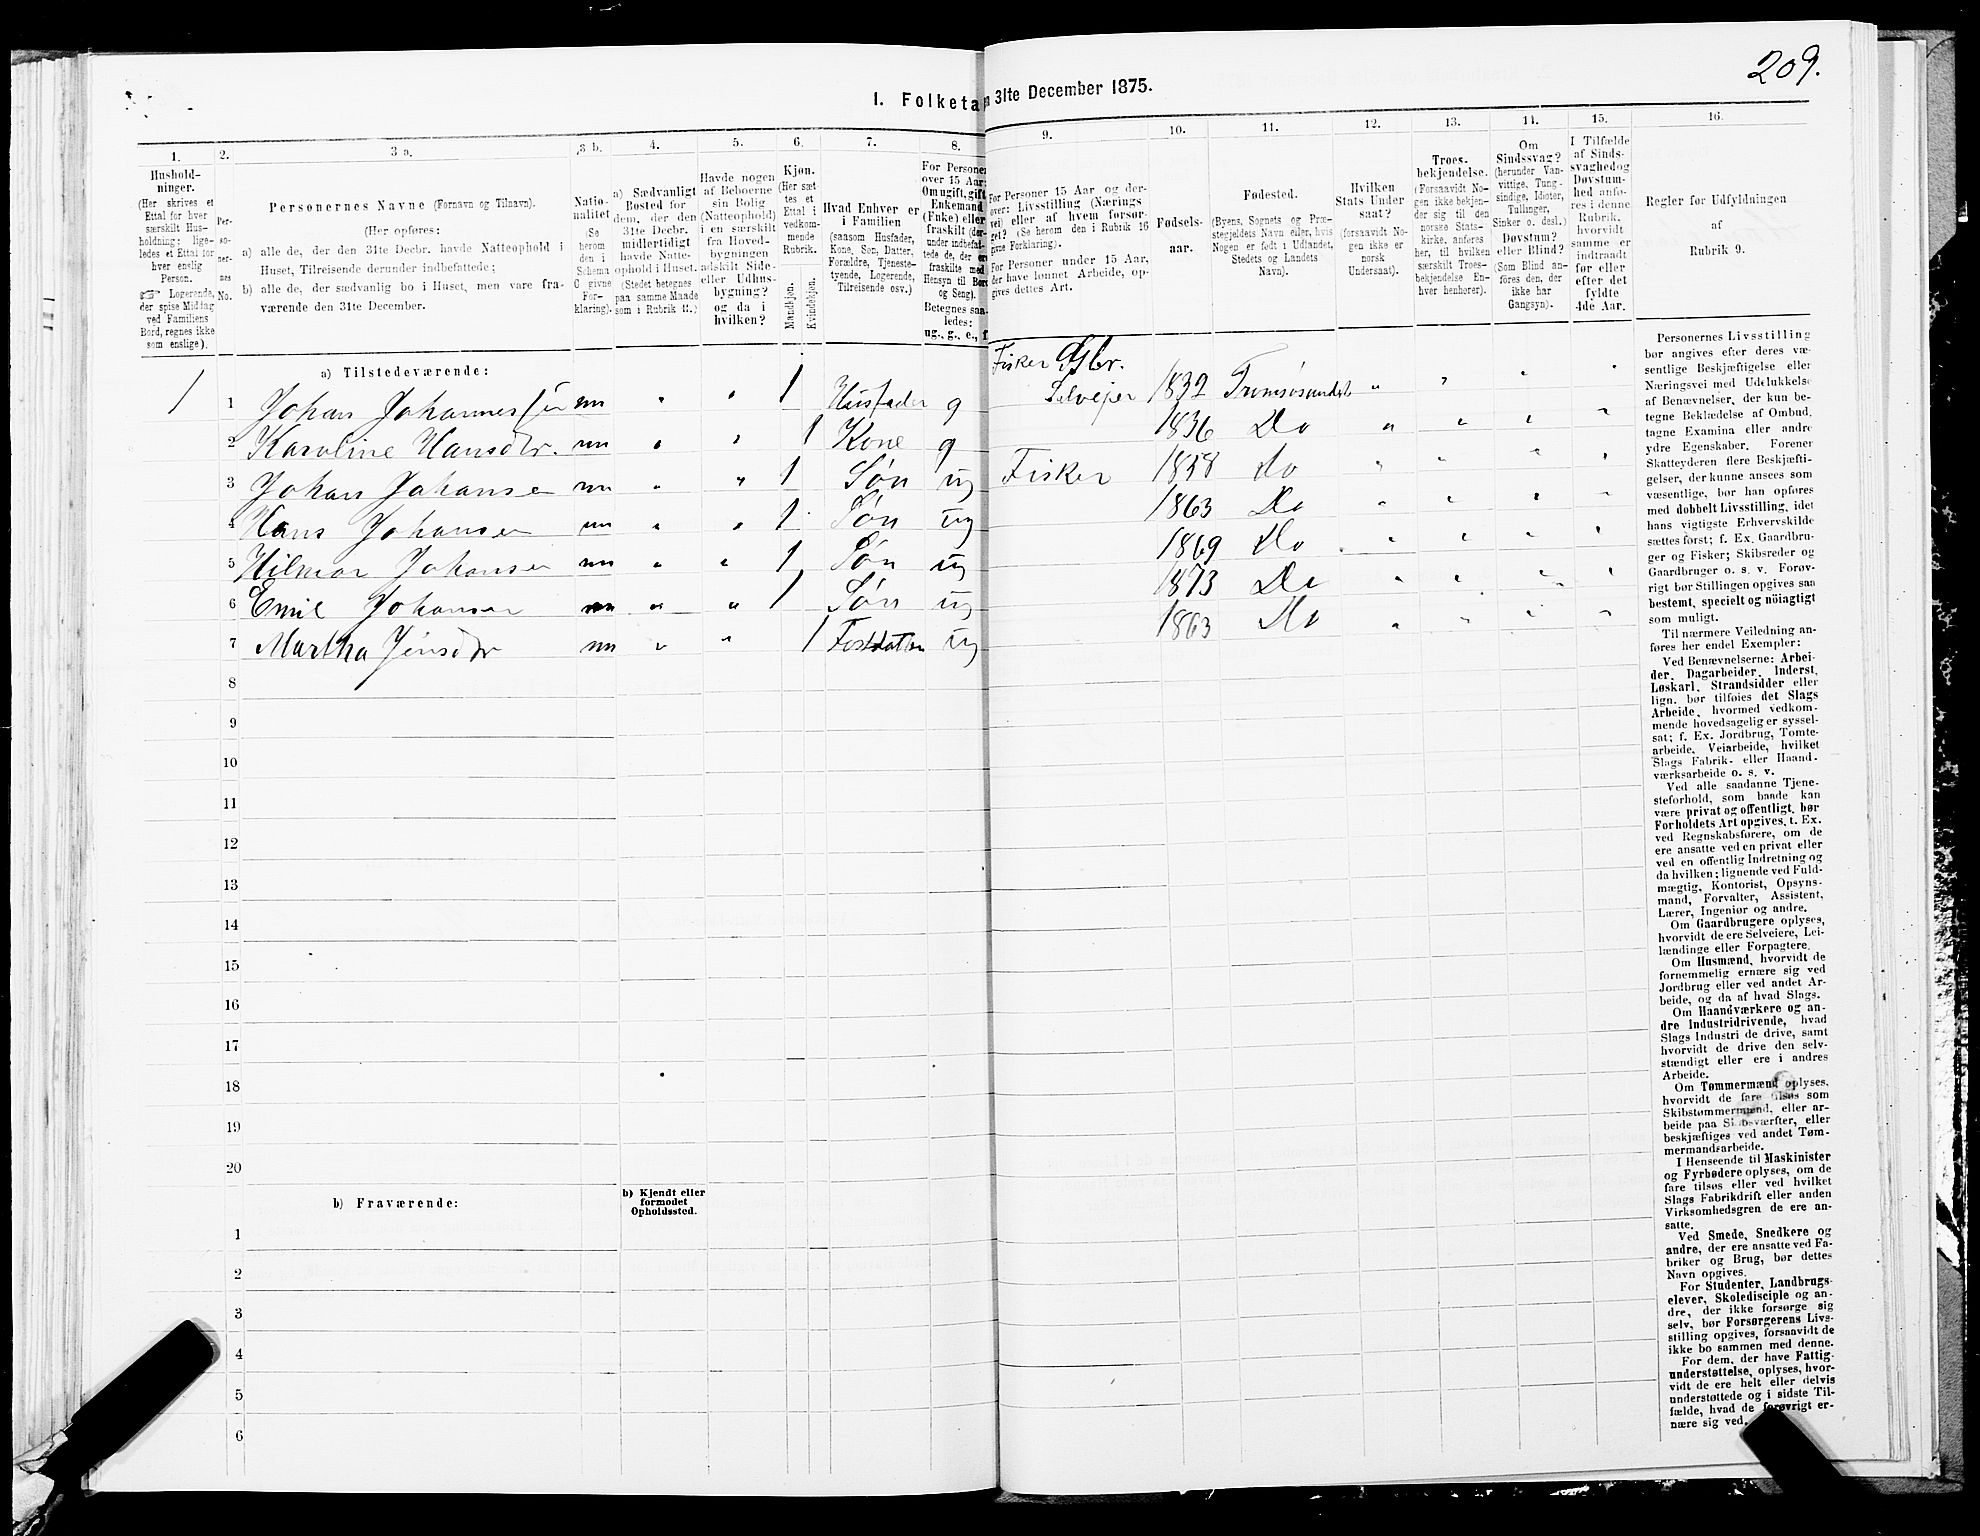 209.
I. Folketa n 31te December 1875.
1. 2. 3 a. 3 b. 4. 5. 6. 7. 8. 9. 10. 11. 12. 13. 14. 15. 16.
Hushold-
ninger.
(Her skrives et
Ettal for hver
særskilt Hus-
holdning; lige-
ledes et Ettal for
hver enslig
Person.
☞ Logerende,
der spise Middag
ved Familiens
Bord, regnes ikke
som enslige).
Per-
so-
ner-
nes
No.
Personernes Navne (Fornavn og Tilnavn).
(Her opføres:
a) alle de, der den 31te Decbr. havde Natteophold i
Huset, Tilreisende derunder indbefattede;
b) alle de, der sædvanlig bo i Huset, men vare fra-
værende den 31te December.
Natio-
nalitet
(Se
herom
den i
Schema
C givne
For-
klaring).
a) Sædvanligt
Bosted for
dem, der den
31te Decbr.
midlertidigt
havde Natte-
ophold i Huset.
(Stedet betegnes
paa samme Maade
som i Rubrik 11.)
Havde nogen
af Beboerne
sin Bolig
(Natteophold)
i en særskilt
fra Hoved-
bygningen
adskilt Side-
eller Udhus-
bygning?
og da i
hvilken?
Kjøn.
(Her sæt-
tes et
Ettal i
vedkom-
mende
Rubrik.
Mandkjøn.
Kvindekjøn.
Hvad Enhver er
i Familien
(saasom Husfader,
Kone, Søn, Datter,
Forældre, Tjeneste-
tyende, Logerende,
Tilreisende osv.)
For Persone
over 15 Aar:
Om ugift, gift
Enkemand
(Enke) eller
fraskilt (der-
under indbefat-
tede de, der ere
fraskilte med
Hensyn til Bord
og Seng).
Betegnes saa-
ledes:
ug., g., e., f
For Personer 15 Aar og der-
over: Livsstilling (Nærings
vei) eller af hvem forsør-
get? (Se herom den i Rubrik 16
givne Forklaring).
For Personer under 15 Aar,
der have lønnet Arbeide, op-
gives dettes Art.
Fødsels-
aar.
Fødested.
(Byens, Sognets og Præ-
stegjeldets Navn eller, hvis
Nogen er født i Udlandet,
Stedets og Landets
Navn).
Hvilken
Stats Under
saat?
(forsaavidt No-
gen ikke er
norsk
Undersaat).
Troes-
bekjendelse.
(Forsaavidt No-
gen ikke bekjen-
der sig til den
norske Stats-
kirke, anføres
her, til hvilken
særskilt Troes-
bekjendelse En-
hver henhører).
Om
Sindssvag?
(herunder Van-
vittige, Tung-
sindige, Idioter,
Tullinger,
Sinker o. desl.)
Døvstum?
eller Blind?
(Som Blind an-
føres den, der
ikke har
Gangsyn).
I Tilfælde
af Sinds-
svaghed og
Døvstum-
hed anfø-
res i denne
Rubrik,
hvorvidt
samme er
indtraadt
før eller
efter det
fyldte
4de Aar.
Regler for Udfyldningen
af
Rubrik 9.
a) Tilstedeværende:
Fisker Gbr.
1 1 Johan Johannessen nn " " 1 Husfader g Selveier 1832 Tromsøsundet " " " "
2 Karoline Hansdtr. nn " " 1 Kone g 1836 Do " " " "
3 Johan Johansen nn " " 1 Søn ug Fisker 1858 Do " " " "
4 Hans Johansen nn " " 1 Søn ug 1863 Do " " " "
5 Hilmar Johansen nn " " 1 Søn ug 1869 Do " " " "
6 Emil Johansen nn " " 1 Søn ug 1873 Do " " " "
7 Martha Jensdtr nn " " 1 Fostdatter ug 1863 Do " " " "
8
9
10
11
12
13
14
15
16
17
18
19
20
b) Fraværende:
b) Kjendt eller
formodet
Opholdssted.
1
2
3
4
5
6
Personernes Livsstilling
bør angives efter deres væ-
sentlige Beskjæftigelse eller
Næringsvei med Udelukkelse
af Benævnelser, der kun be-
tegne Beklædelse af Ombud,
tagne Examina eller andre
ydre Egenskaber. Forener
Skatteyderen flere Beskjæfti-
gelser, der kunne ansees som
væsentlige, bør han opføres
med dobbelt Livsstilling, idet
hans vigtigste Erhvervskilde
sættes først; f. Ex. Gaardbru-
ger og Fisker; Skibsreder og
Gaardbruger o. s. v. Forøv-
rigt bør Stillingen opgives saa
bestemt, specielt og nöiagtigt
som muligt.
Til nærmere Veiledning an-
føres her endel Exempler:
Ved Benævnelserne: Arbei-
der, Dagarbeider, Inderst,
Løskarl, Strandsidder eller
lign. bør tilføies det Slags
Arbeide, hvormed vedkom-
mende hovedsagelig er syssel-
sat; f. Ex. Jordbrug, Tomte-
arbeide, Veiarbeide, hvilket
Slags Fabrik- eller Haand-
værksarbeide o. s. v.
Ved alle saadanne Tjene-
steforhold, som baade kan
være privat og offentligt, bør
Forholdets Art opgives, t. Ex.
ved Regnskabsførere, om de
ere ansatte ved en privat eller
ved en offentlig Indretning og
da hvilken; lignende ved Fuld-
mægtig, Kontorist, Opsyns-
mand, Forvalter, Assistent,
Lærer, Ingeniør og andre.
Om Gaardbrugere oplyses,
hvorvidt de ere Selveiere, Lei-
lændinge eller Forpagtere.
Om Husmænd, hvorvidt de
fornemmelig ernære sig ved
Jordbrug eller ved andet Ar-
beide, og da af hvad Slags.
Om Haandværkere og an-
dre Industridrivende, hvad
Slags Industri de drive, samt
hvorvidt de drive den selv-
stændigt eller ere i andres
Arbeide.
Om Tømmermænd oplyses,
hvorvidt de fare tilsøs som
Skibstømmermænd, eller ar-
beide paa Skibsværfter, eller
beskjæftiges ved andet Tøm-
mermandsarbeide.
I Henseende til Maskinister
og Fyrbødere oplyses, om de
fare tilsøs eller ved hvilket
Slags Fabrikdrift eller anden
Virksomhedsgren de ere an-
satte.
Ved Smede, Snedkere og
andre, der ere ansatte ved Fa-
briker og Brug, bør dettes
Navn opgives.
For Studenter, Landbrugs-
elever, Skoledisciple og an-
dre, der ikke forsørge sig
selv, bør Forsørgerens Livs-
stilling opgives, forsaavidt de
ikke bo sammen med denne.
For dem, der have Fattig-
understøttelse, oplyses, hvor-
vidt de ere helt eller delvis
understøttede og i sidste Til-
fælde, hvad de forøvrigt er-
nære sig ved.